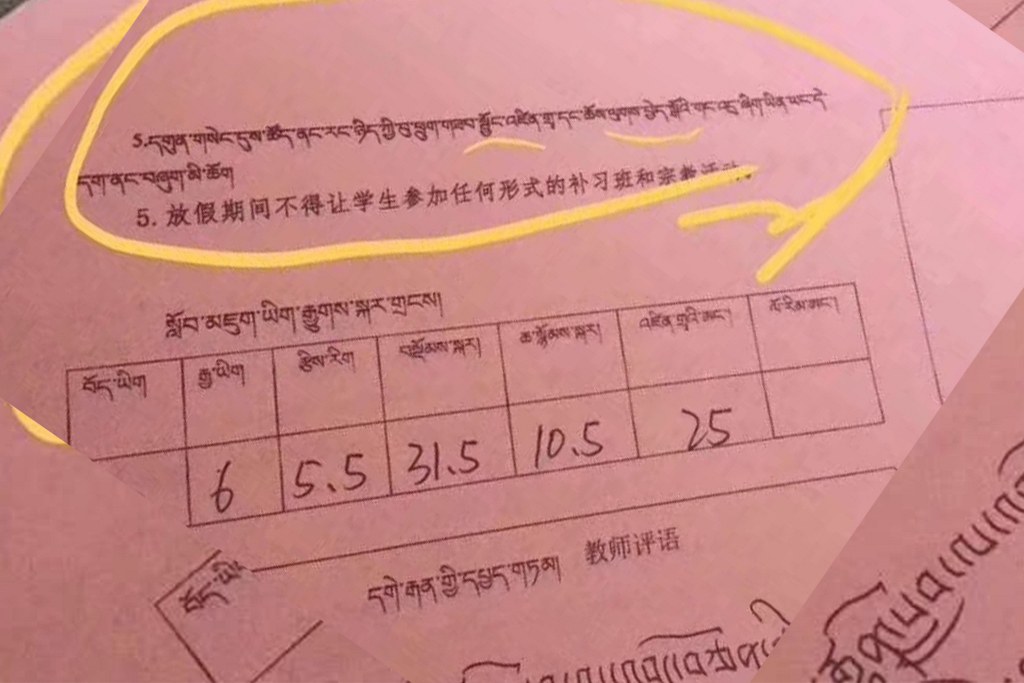 5.དགུན་གསེང་དུས་ཚོད་ནང་རང་ཉིད་ཀྱི་བུ་ཕྲུག་གསབ་སྦྱོང་འཛིན་གྲྭ་དང་ཆོས་ལུགས་བྱེད་སྒོའི་གང་འདྲ་ཞིག་ཡིན་ཡང་དེ་
དག་ནང་བཞུགས་མི་ཆོག
5. 放假期间不得让学生参加任何形式的补习班和宗教活动
སློབ་མཇུག་ཡིག་རྒྱུགས་སྐར་གྲངས།
བོད་ཡིག རྒྱ་ཡིག རྩིས་རིག བསྡོམས་སྐར། ཆ་སྙོམས་སྐར། འཛིན་གྲྭའི་ཨང་། ལོ་རིམ་ཨང་།
6 5.5 31.5 10.5 25
བོད་ཡིག
དགེ་རྒན་གྱི་དཔྱད་གཏམ། 教师评语